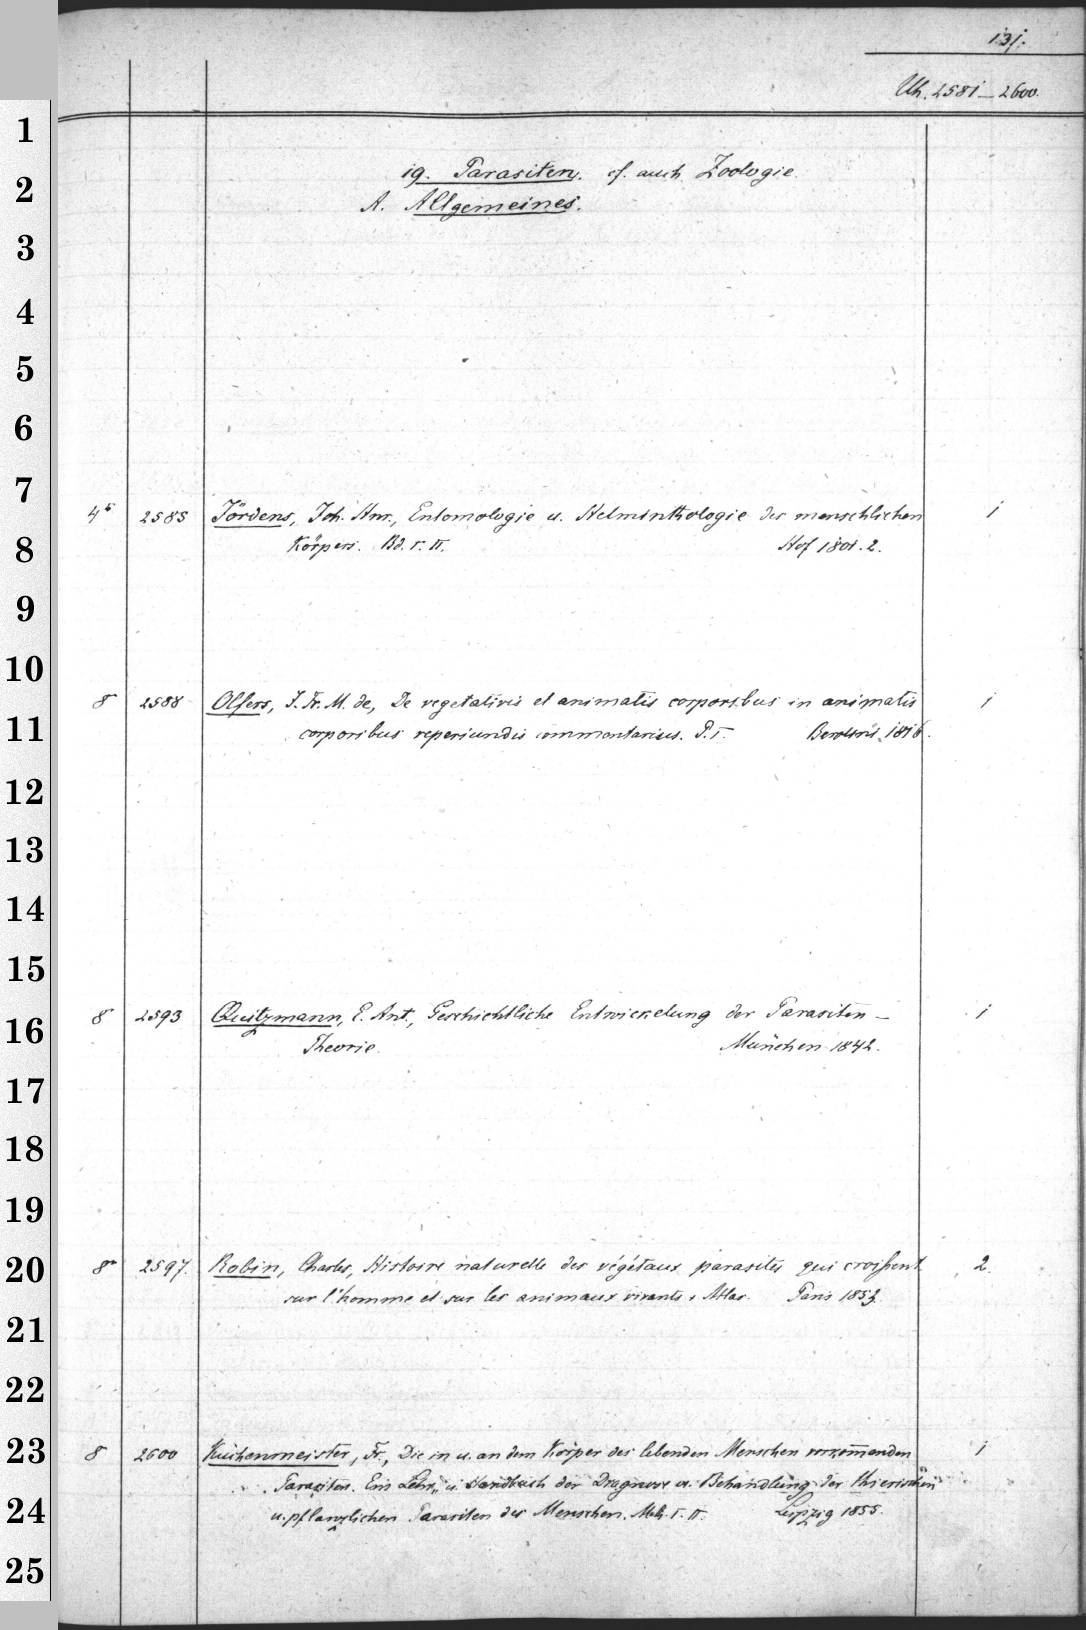 131.
Uh. 2581–2600.
19. Parasiten. cf. auch Zoologie.
A. Allgemeines.
4° 2585 Jördens, Joh. Hnr., Entomologie u. Helminthologie des menschlichen 1
Körpers. Bd. I. II. Hof 1801. 2.
8° 2588 Olfers, J. Fr. M. de, De vegetativis et animatis corporibus in animatis 1
corporibus reperiundis commentarius. P. I. Berolini 1816.
8° 2593 Quitzmann, E. Ant., Geschichtliche Entwickelung der Parasiten – 1
Theorie. München 1842.
8° 2597. Robin, Charles, Histoire naturelle des végétaux parasites qui croissent 2.
sur l'homme et sur les animaux vivants. Atlas. Paris 1853.
8 2600 Küchenmeister, Fr., Die in u. an dem Körper des lebenden Menschen vorkom̅enden 1
Parasiten. Ein Lehr- u. Handbuch der Diagnose u. Behandlung der thierischen
u. pflanzlichen Parasiten des Menschen. Abth. I. II. Leipzig 1855.
1
2
3
4
5
6
7
8
9
10
11
12
13
14
15
16
17
18
19
20
21
22
23
24
25